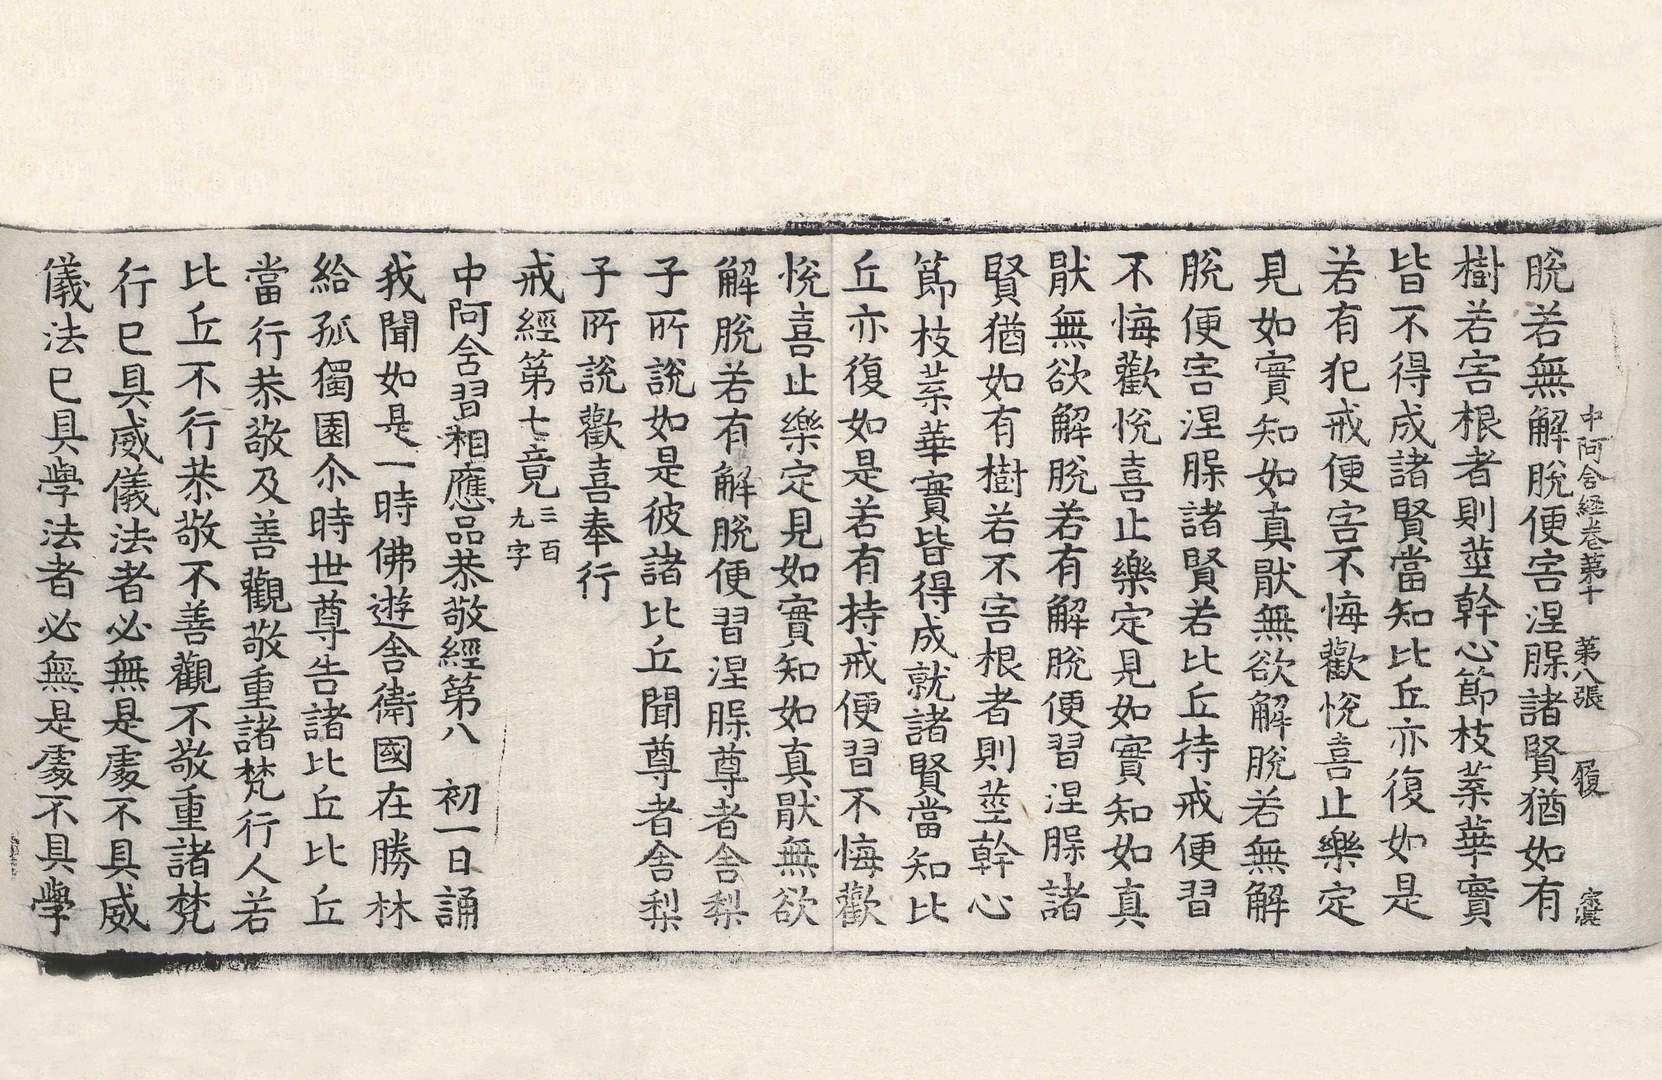 中阿含経卷第十　第八張　履　宗眞
脫若無解脫便害涅槃諸賢猶如有
樹若害根者則莖幹心節枝葉華實
皆不得成諸賢當知比丘亦復如是
若有犯戒便害不悔歡悅喜止樂定
見如實知如真猒無欲解脫若無解
脫便害涅槃諸賢若比丘持戒便習
不悔歡悅喜止樂定見如實知如真
猒無欲解脫若有解脫便習涅槃諸
賢猶如有樹若不害根者則莖幹心
節枝葉華實皆得成就諸賢當知比
丘亦復如是若有持戒便習不悔歡
悅喜止樂定見如實知如真猒無欲
解脫若有解脫便習涅槃尊者舍梨
子所說如是彼諸比丘聞尊者舍梨
子所說歡喜奉行
戒經第七竟三百九字
中阿含習相應品恭敬經第八　初一日誦
我聞如是一時佛遊舍衛國在勝林
給孤獨園尒時世尊告諸比丘比丘
當行恭敬及善觀敬重諸梵行人若
比丘不行恭敬不善觀不敬重諸梵
行已具威儀法者必無是處不具威
儀法已具學法者必無是處不具學